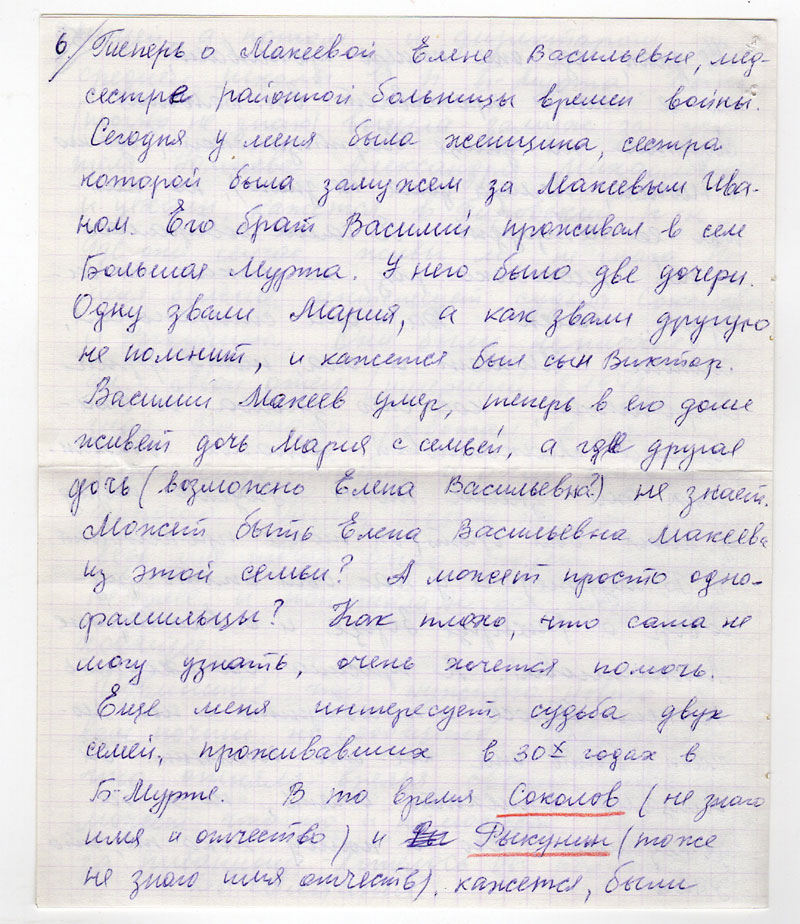 6/ Теперь о Макеевой Елене Васильевне, мед-
сестре районной больницы времен войны.
Сегодня у меня была женщина, сестра
которой была замужем за Макеевым Ива-
ном. Его брат Василий проживал в селе
Большая Мурта. У него было две дочери.
Одну звали Мария, а как звали другую
не помнит, и кажется был сын Виктор.
Василий Макеев умер, теперь в его доме
живет дочь Мария с семьей, а где другая
дочь (возможно Елена Васильевна?) не знает.
Может быть Елена Васильевна Макеева
из этой семьи? А может просто одно-
фамильцы? Как плохо, что сама не
могу узнать, очень хочется помочь.
Еще меня интересует судьба двух
семей, проживавших в 30х годах в
Б-Мурте. В то время Соколов (не знаю
имя и отчество) и Рыкунин (тоже
не знаю имя отчеств), кажется, были